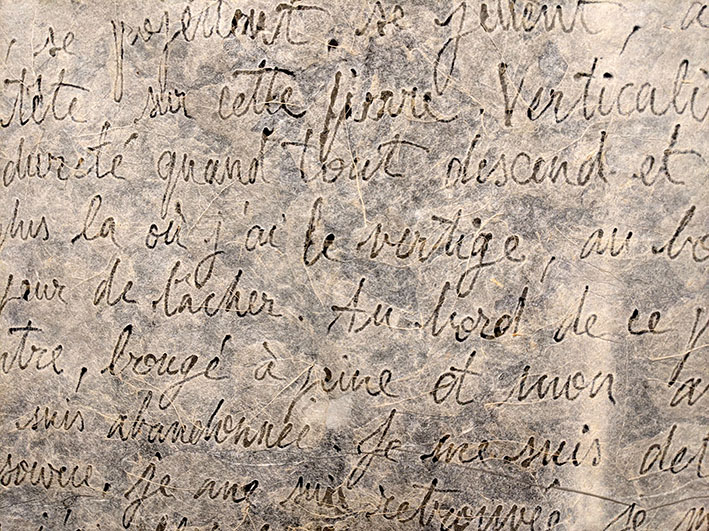 , se projettent, se jettent, a
tête sur cette pierre. Verticali
dureté quand tout descend et
plus la où j'ai le vertige, au bo
peur de lâcher. Au bord de ce p
ntre, bougé à peine et mon a
suis abandonnée. Je me suis det
Je me suis retrouvée. Je m